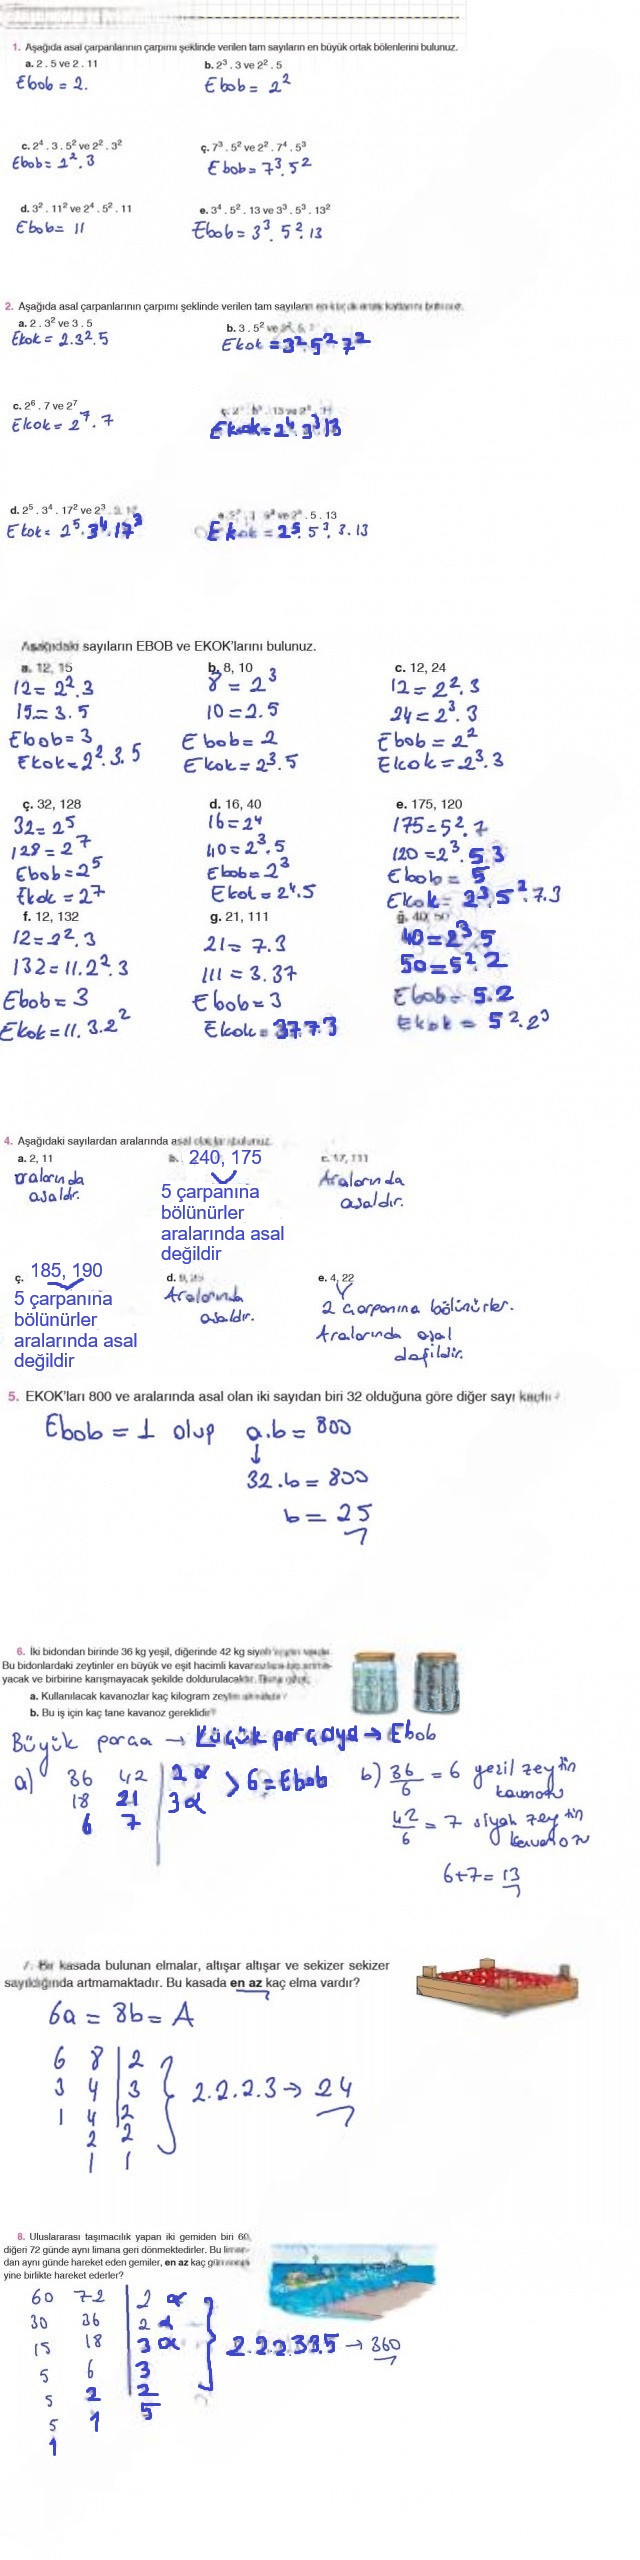 1. Aşağıda asal çarpanlarının çarpımı şeklinde verilen tam sayıların en büyük ortak bölenlerini bulunuz.
a. 2 . 5 ve 2 . 11
b. 2³ . 3 ve 2² . 5
Ebob = 2.
Ebob = 2²
c. 2⁴ . 3 . 5² ve 2² . 3²
ç. 7³ . 5² ve 2² . 7⁴ . 5³
Ebob = 2² . 3
Ebob = 7³ . 5²
d. 3² . 11² ve 2⁴ . 5² . 11
e. 3⁴ . 5² . 13 ve 3³ . 5³ . 13²
Ebob = 11
Ebob = 3³ . 5² . 13
2. Aşağıda asal çarpanlarının çarpımı şeklinde verilen tam sayıların
a. 2 . 3² ve 3 . 5
b. 3 . 5² ve
Ekok = 2.3².5
Ekok = 3² 5² 7²
c. 2⁶ . 7 ve 2⁷
Ekok = 2⁷ . 7
Ekok = 2⁴ 3³ 13
d. 2⁵ . 3⁴ . 17² ve 2³
. 5 . 13
Ekok = 2⁵ . 3⁴ . 17³
Ekok = 2⁵ . 5³ . 3 . 13
Aşağıdaki sayıların EBOB ve EKOK'larını bulunuz.
a. 12, 15
b. 8, 10
c. 12, 24
12 = 2² . 3
8 = 2³
12 = 2² . 3
15 = 3 . 5
10 = 2 . 5
24 = 2³ . 3
Ebob = 3
Ebob = 2
Ebob = 2²
Ekok = 2² . 3 . 5
Ekok = 2³ . 5
Ekok = 2³ . 3
ç. 32, 128
d. 16, 40
e. 175, 120
32 = 2⁵
16 = 2⁴
175 = 5² . 7
128 = 2⁷
40 = 2³ . 5
120 = 2³ . 5 3
Ebob = 2⁵
Ebob = 2³
Ebob = 5
Ekok = 2⁷
Ekok = 2⁴ . 5
Ekok = 2³ . 5² . 7.3
f. 12, 132
g. 21, 111
ğ. 40, 50
12 = 2² . 3
21 = 7.3
40 = 2³ 5
132 = 11 . 2² . 3
111 = 3.37
50 = 5² 2
Ebob = 3
Ebob = 3
Ebob = 5.2
Ekok = 11 . 3 . 2²
Ekok = 37.7 3
Ekok = 5² . 2³
4. Aşağıdaki sayılardan aralarında asal
a. 2, 11
240, 175
c. 17, 111
aralarında
asaldır.
5 çarpanına
bölünürler
aralarında asal
değildir
Aralarında
asaldır.
ç. 185, 190
d. 9, 25
e. 4, 22
5 çarpanına
bölünürler
aralarında asal
değildir
Aralarında
asaldır.
2 çarpanına bölünürler.
Aralarında asal
değildir.
5. EKOK'ları 800 ve aralarında asal olan iki sayıdan biri 32 olduğuna göre diğer sayı kaçtır
Ebob = 1 olup a.b = 800
32 . b = 800
b = 25
6. İki bidondan birinde 36 kg yeşil, diğerinde 42 kg siyah
Bu bidonlardaki zeytinler en büyük ve eşit hacimli
yacak ve birbirine karışmayacak şekilde doldurulacaktır.
a. Kullanılacak kavanozlar kaç kilogram
b. Bu iş için kaç tane kavanoz gereklidir?
Büyük parça → küçük parçaya → Ebob
a) 36 42 2 α
18 21 3 α
6 7
> 6 = Ebob
b) 36/6 = 6 yeşil zeytin
kavanozu
42/6 = 7 siyah zeytin
kavanoz
6+7 = 13
7. Bir kasada bulunan elmalar, altışar altışar ve sekizer sekizer
sayıldığında artmamaktadır. Bu kasada en az kaç elma vardır?
6a = 8b = A
6 8 2
3 4 3
1 4 2
2 2
1 1
2.2.2.3 → 24
8. Uluslararası taşımacılık yapan iki gemiden biri 60,
diğeri 72 günde aynı limana geri dönmektedirler. Bu liman-
dan aynı günde hareket eden gemiler, en az kaç gün sonra
yine birlikte hareket ederler?
60 72 2 α
30 36 2 α
15 18 3 α
5 6 3
5 2 2
5 1 5
1
2.2.2.3.3.5 → 360